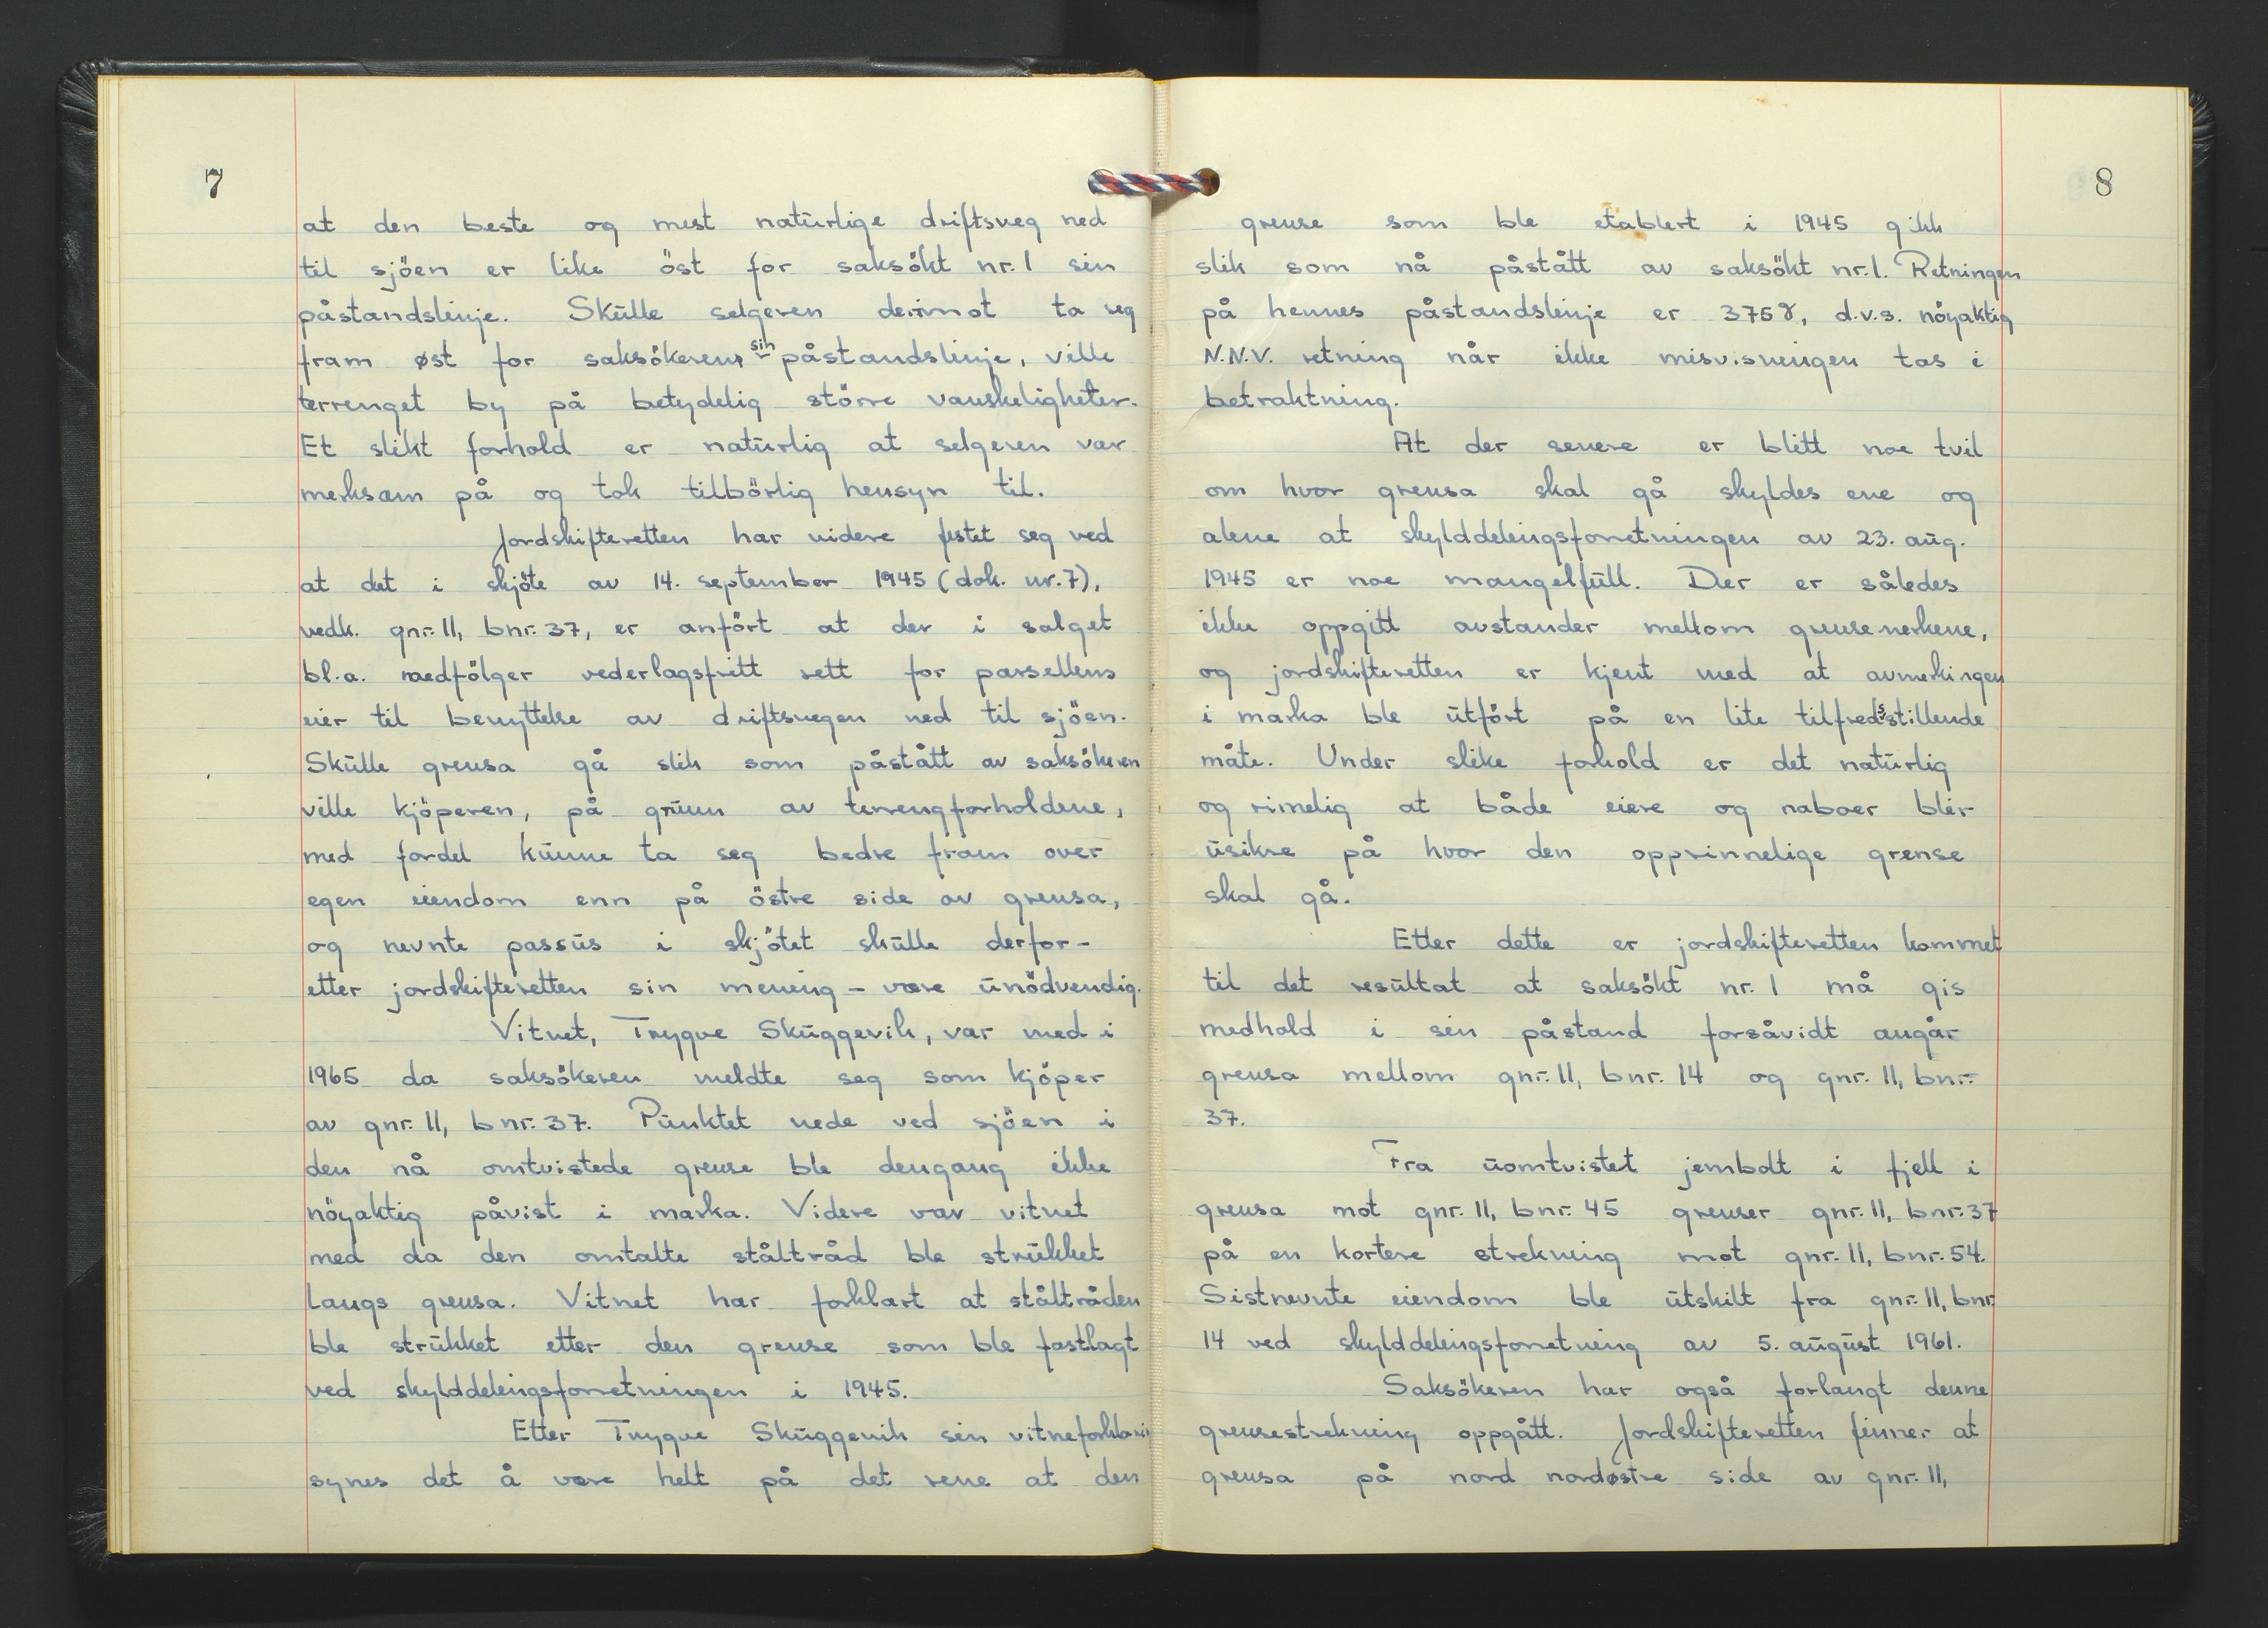 7
at den beste og mest naturlige driftsveg ned
til sjöen er like öst for saksökt nr. 1 sin
påstandslinje. Skulle selgeren derimot ta seg
fram øst for saksökerens sin påstandslinje, ville
terrenget by på betydelig större vanskeligheter.
Et slikt forhold er naturlig at selgeren var
merksam på og tok tilbörlig hensyn til.
Jordskifteretten har videre festet seg ved
at det i skjöte av 14. september 1945 (dok. nr. 7),
vedk. gnr. 11, bnr. 37, er anfört at der i salget
bl.a. medfölger vederlagsfritt rett for parsellens
eier til benyttelse av driftsvegen ned til sjöen.
Skulle grensa gå slik som påstått av saksökeren
ville kjöperen, på grunn av terrengforholdene,
med fordel kunne ta seg bedre fram over
egen eiendom enn på östre side av grensa,
og nevnte passus i skjötet skulle derfor -
etter jordskifteretten sin mening - være unödvendig.
Vitnet, Trygve Skuggevik, var med i
1965 da saksökeren meldte seg som kjöper
av gnr. 11, bnr. 37. Punktet nede ved sjöen i
den nå omtvistede grense ble dengang ikke
nöyaktig påvist i marka. Videre var vitnet
med da den omtalte ståltråd ble strukket
langs grensa. Vitnet har forklart at ståltråden
ble strukket etter den grense som ble fastlagt
ved skylddelingsforretningen i 1945.
Etter Trygve Skuggevik sin vitneforklarin
synes det å være helt på det rene at den
8
grense som ble etablert i 1945 gikk
slik som nå påstått av saksökt nr. 1. Retningen
på hennes påstandslinje er 375g, d.v.s. nöyaktig
N.N.V. retning når ikke misvisningen tas i
betraktning.
At der senere er blitt noe tvil
om hvor grensa skal gå skyldes ene og
alene at skylddelingsforretningen av 23. aug.
1945 er noe mangelfull. Der er således
ikke oppgitt avstander mellom grensemerkene,
og jordskifteretten er kjent med at avmerkingen
i marka ble utfört på en lite tilfredsstillende
måte. Under slike forhold er det naturlig
og rimelig at både eiere og naboer blir
usikre på hvor den opprinnelige grense
skal gå.
Etter dette er jordskifteretten kommet
til det resultat at saksökt nr. 1 må gis
medhold i sin påstand forsåvidt angår
grensa mellom gnr. 11, bnr. 14 og gnr. 11, bnr.
37.
Fra uomtvistet jernbolt i fjell i
grensa mot gnr. 11, bnr. 45 grenser gnr. 11, bnr. 37
på en kortere strekning mot gnr. 11, bnr. 54.
Sistnevnte eiendom ble utskilt fra gnr. 11, bnr.
14 ved skylddelingsforretning av 5. august 1961.
Saksökeren har også forlangt denne
grensestrekning oppgått. Jordskifteretten finner at
grensa på nord nordøstre side av gnr. 11,